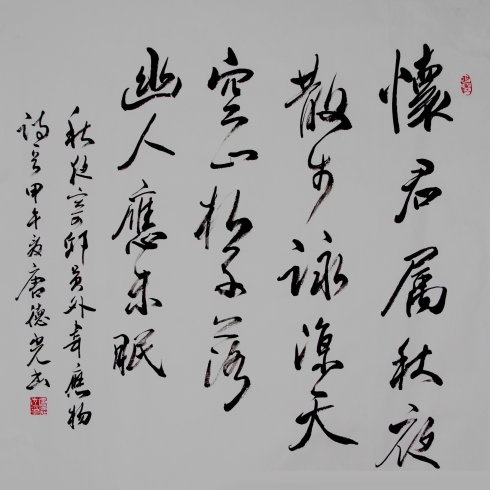 懷君属秋夜
散步詠涼天
空山松子落
幽人應未眠
秋夜寄邱员外韋應物
詩甲午唐德光书